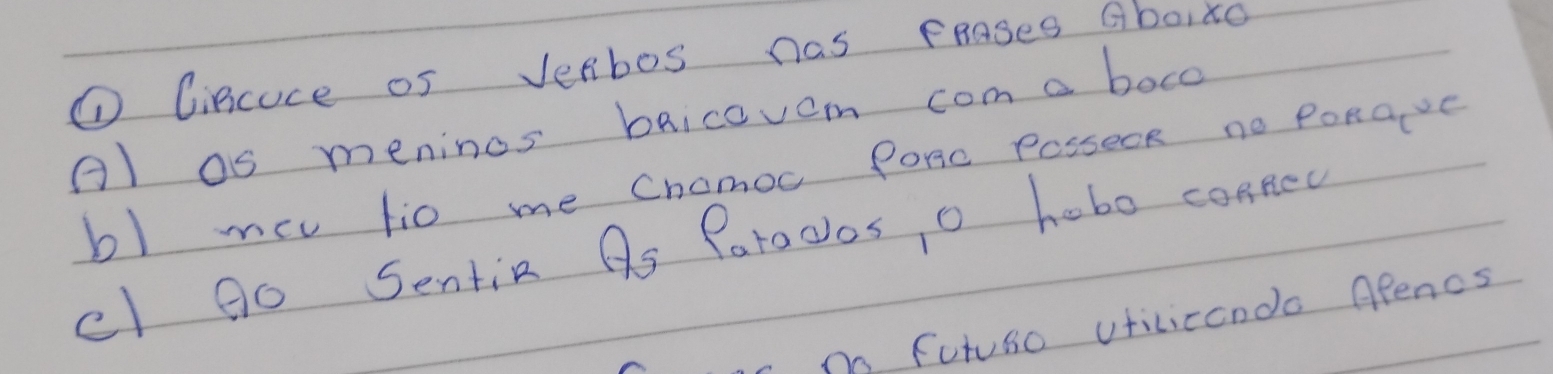 ① Circuce os verbos nas frases Abaixo
A) os meninos bricavam com a boca
b) meu tio me chamou Para Passear no Porque
c) Ao Sentir As Patadas, o hobo correu
no Futuro utilizando Apenas